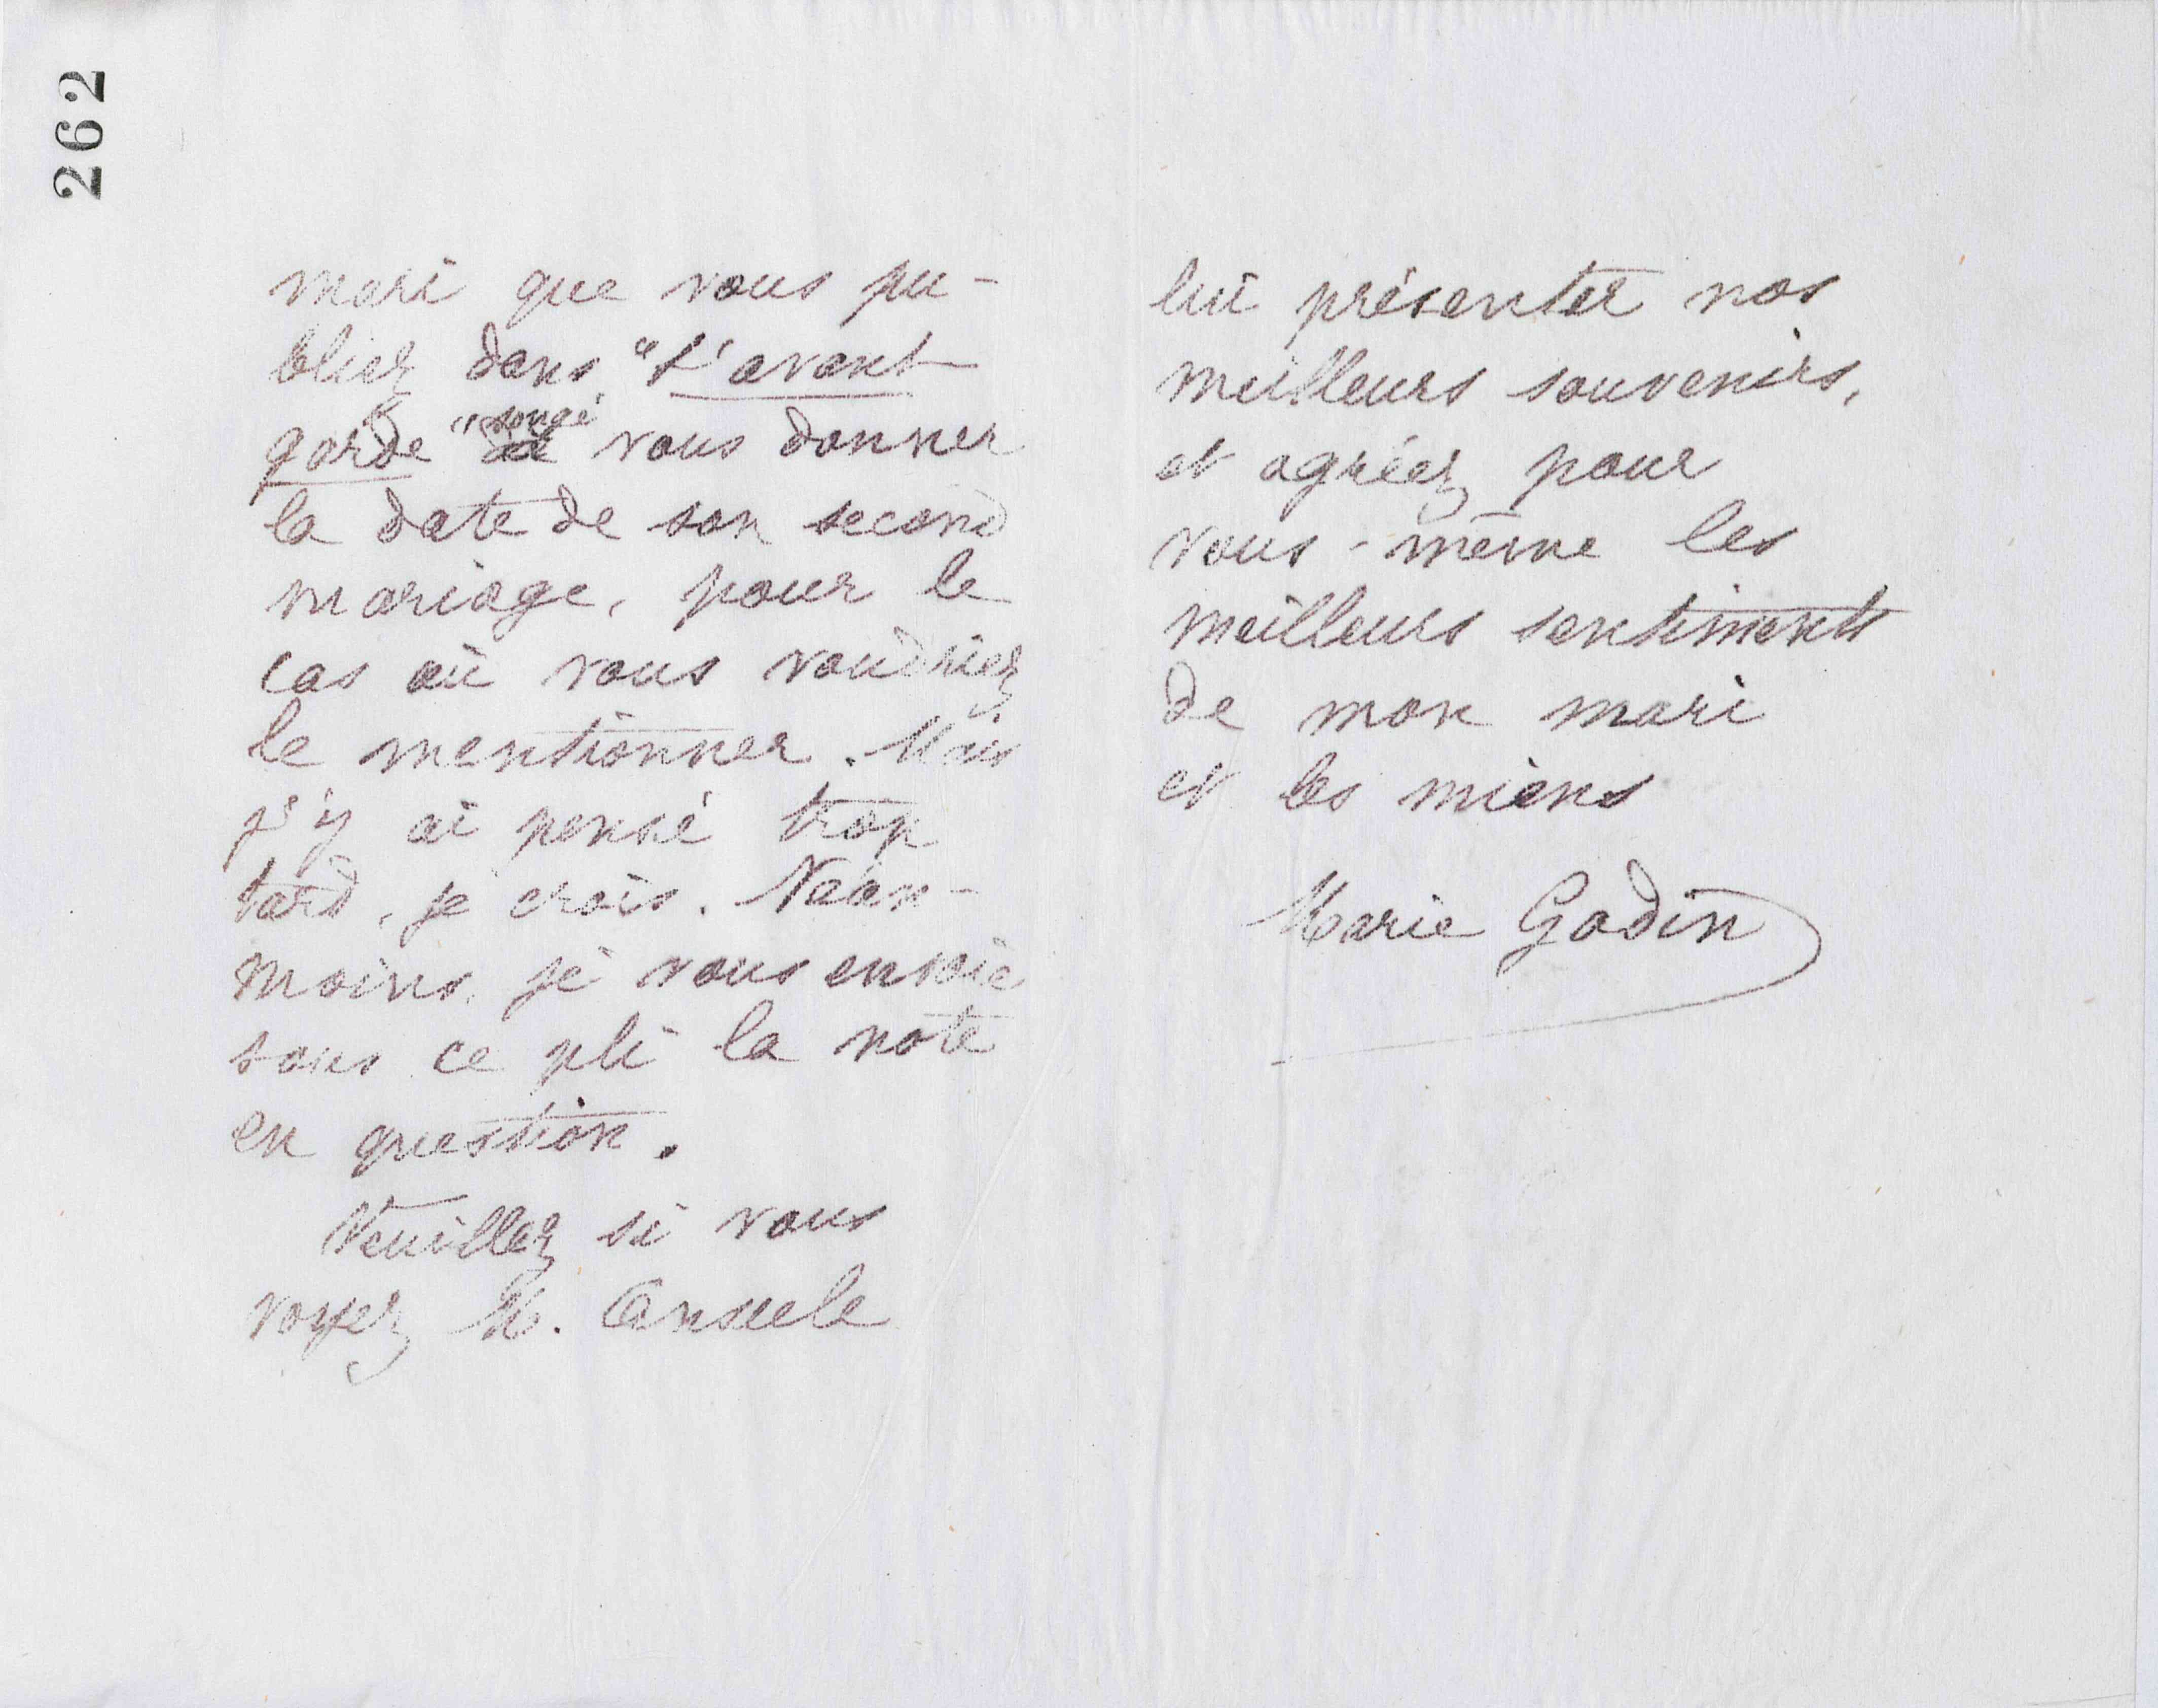 262
mari que vous pu-
bliez dans "L'avant
garde" songé vous donner
la date de son second
mariage, pour le
cas où vous voudriez
le mentionner. Mais
j'y ai pensé trop
tard, je crois. Néan-
moins, je vous envoie
sous ce pli la note
en question.
Veuillez si vous
voyez M. Anseele
lui présenter nos
meilleurs souvenirs,
et agréez pour
vous-même les
meilleurs sentiments
de mon mari
et les miens
Marie Godin